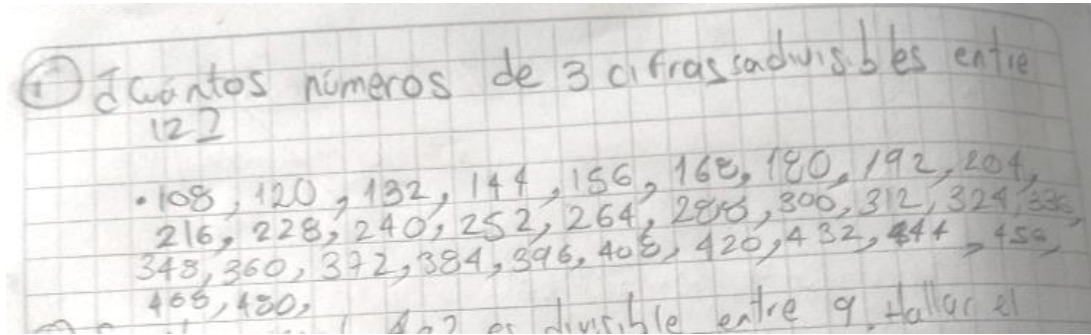 1) ¿Cuántos números de 3 cifras son divisibles entre
12?
• 108, 120, 132, 144, 156, 168, 180, 192, 204,
216, 228, 240, 252, 264, 288, 300, 312, 324, 336,
348, 360, 372, 384, 396, 408, 420, 432, 444, 456,
468, 480,
es divisible entre 9 Hallar el